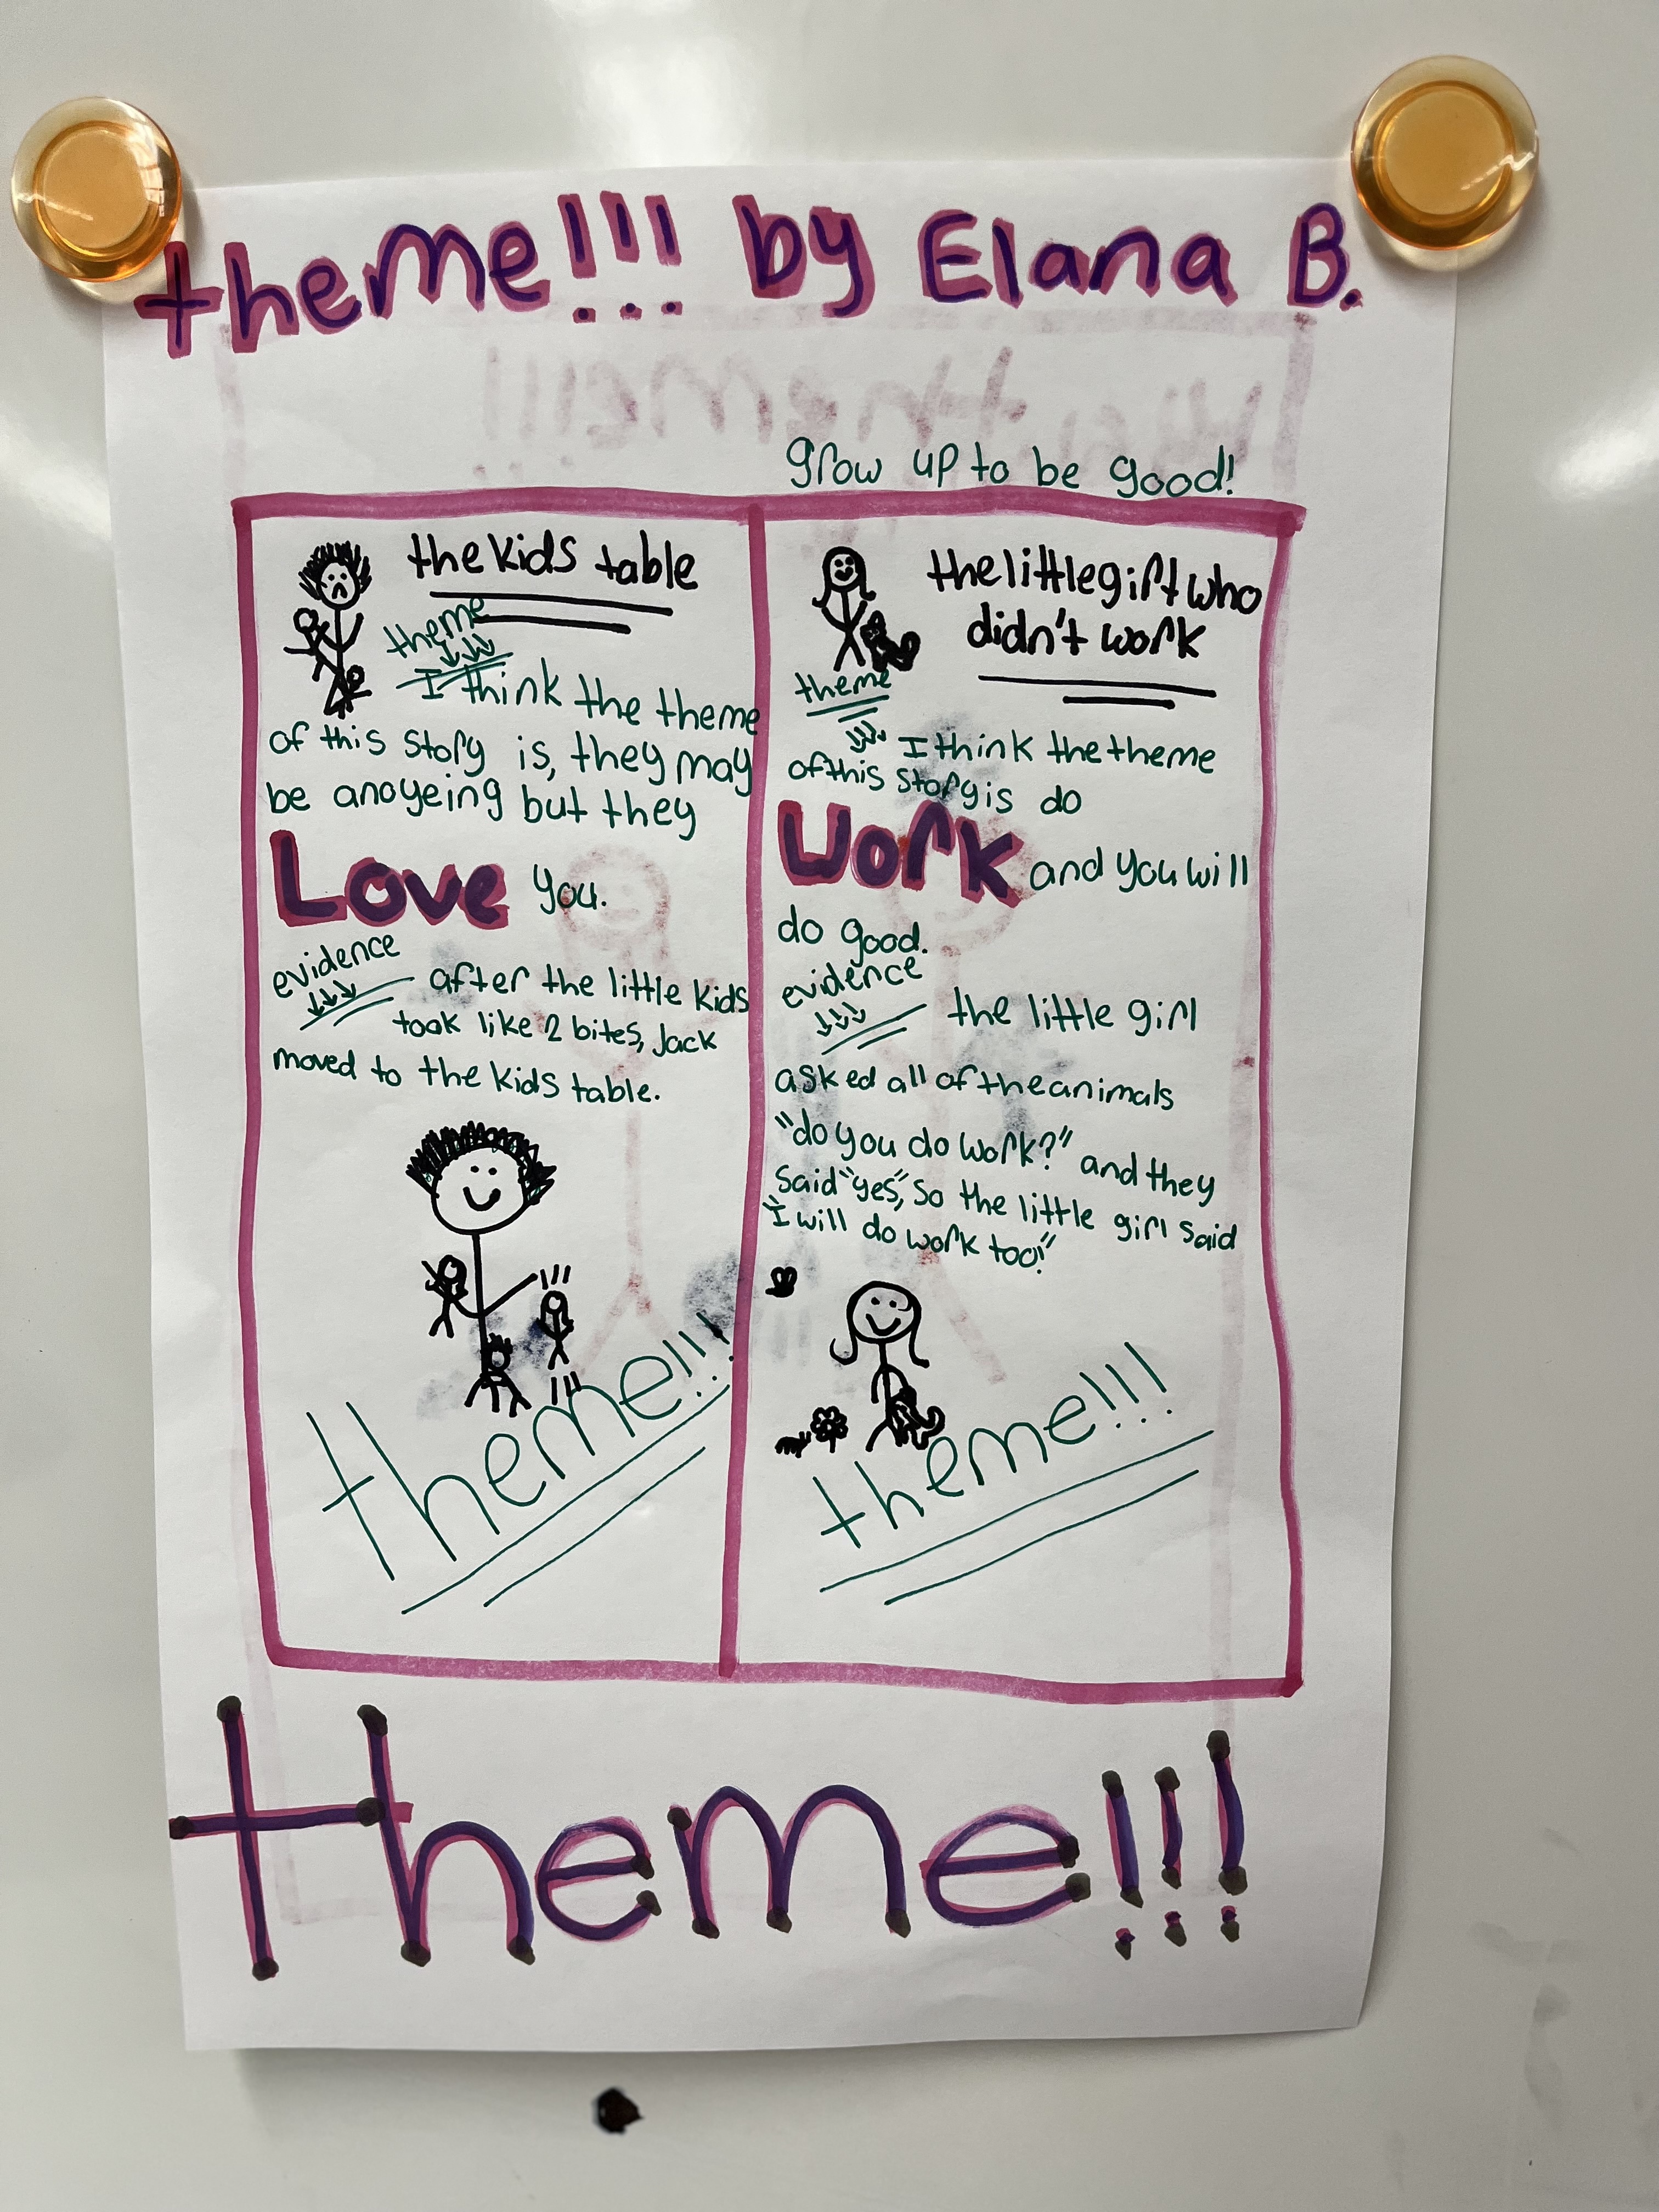 theme!!! by Elana B.
grow up to be good!
the kids table
theme
I think the theme
of this story is, they may
be anoyeing but they
Love you.
evidence
after the little kids
took like 2 bites, Jack
moved to the kids table.
theme!!!
the little girl who
didn't work
theme
I think the theme
of this story is do
Work and you will
do good.
evidence
the little girl
asked all of the animals
"do you do work?" and they
said "yes", so the little girl said
"I will do work too!"
theme!!!
theme!!!